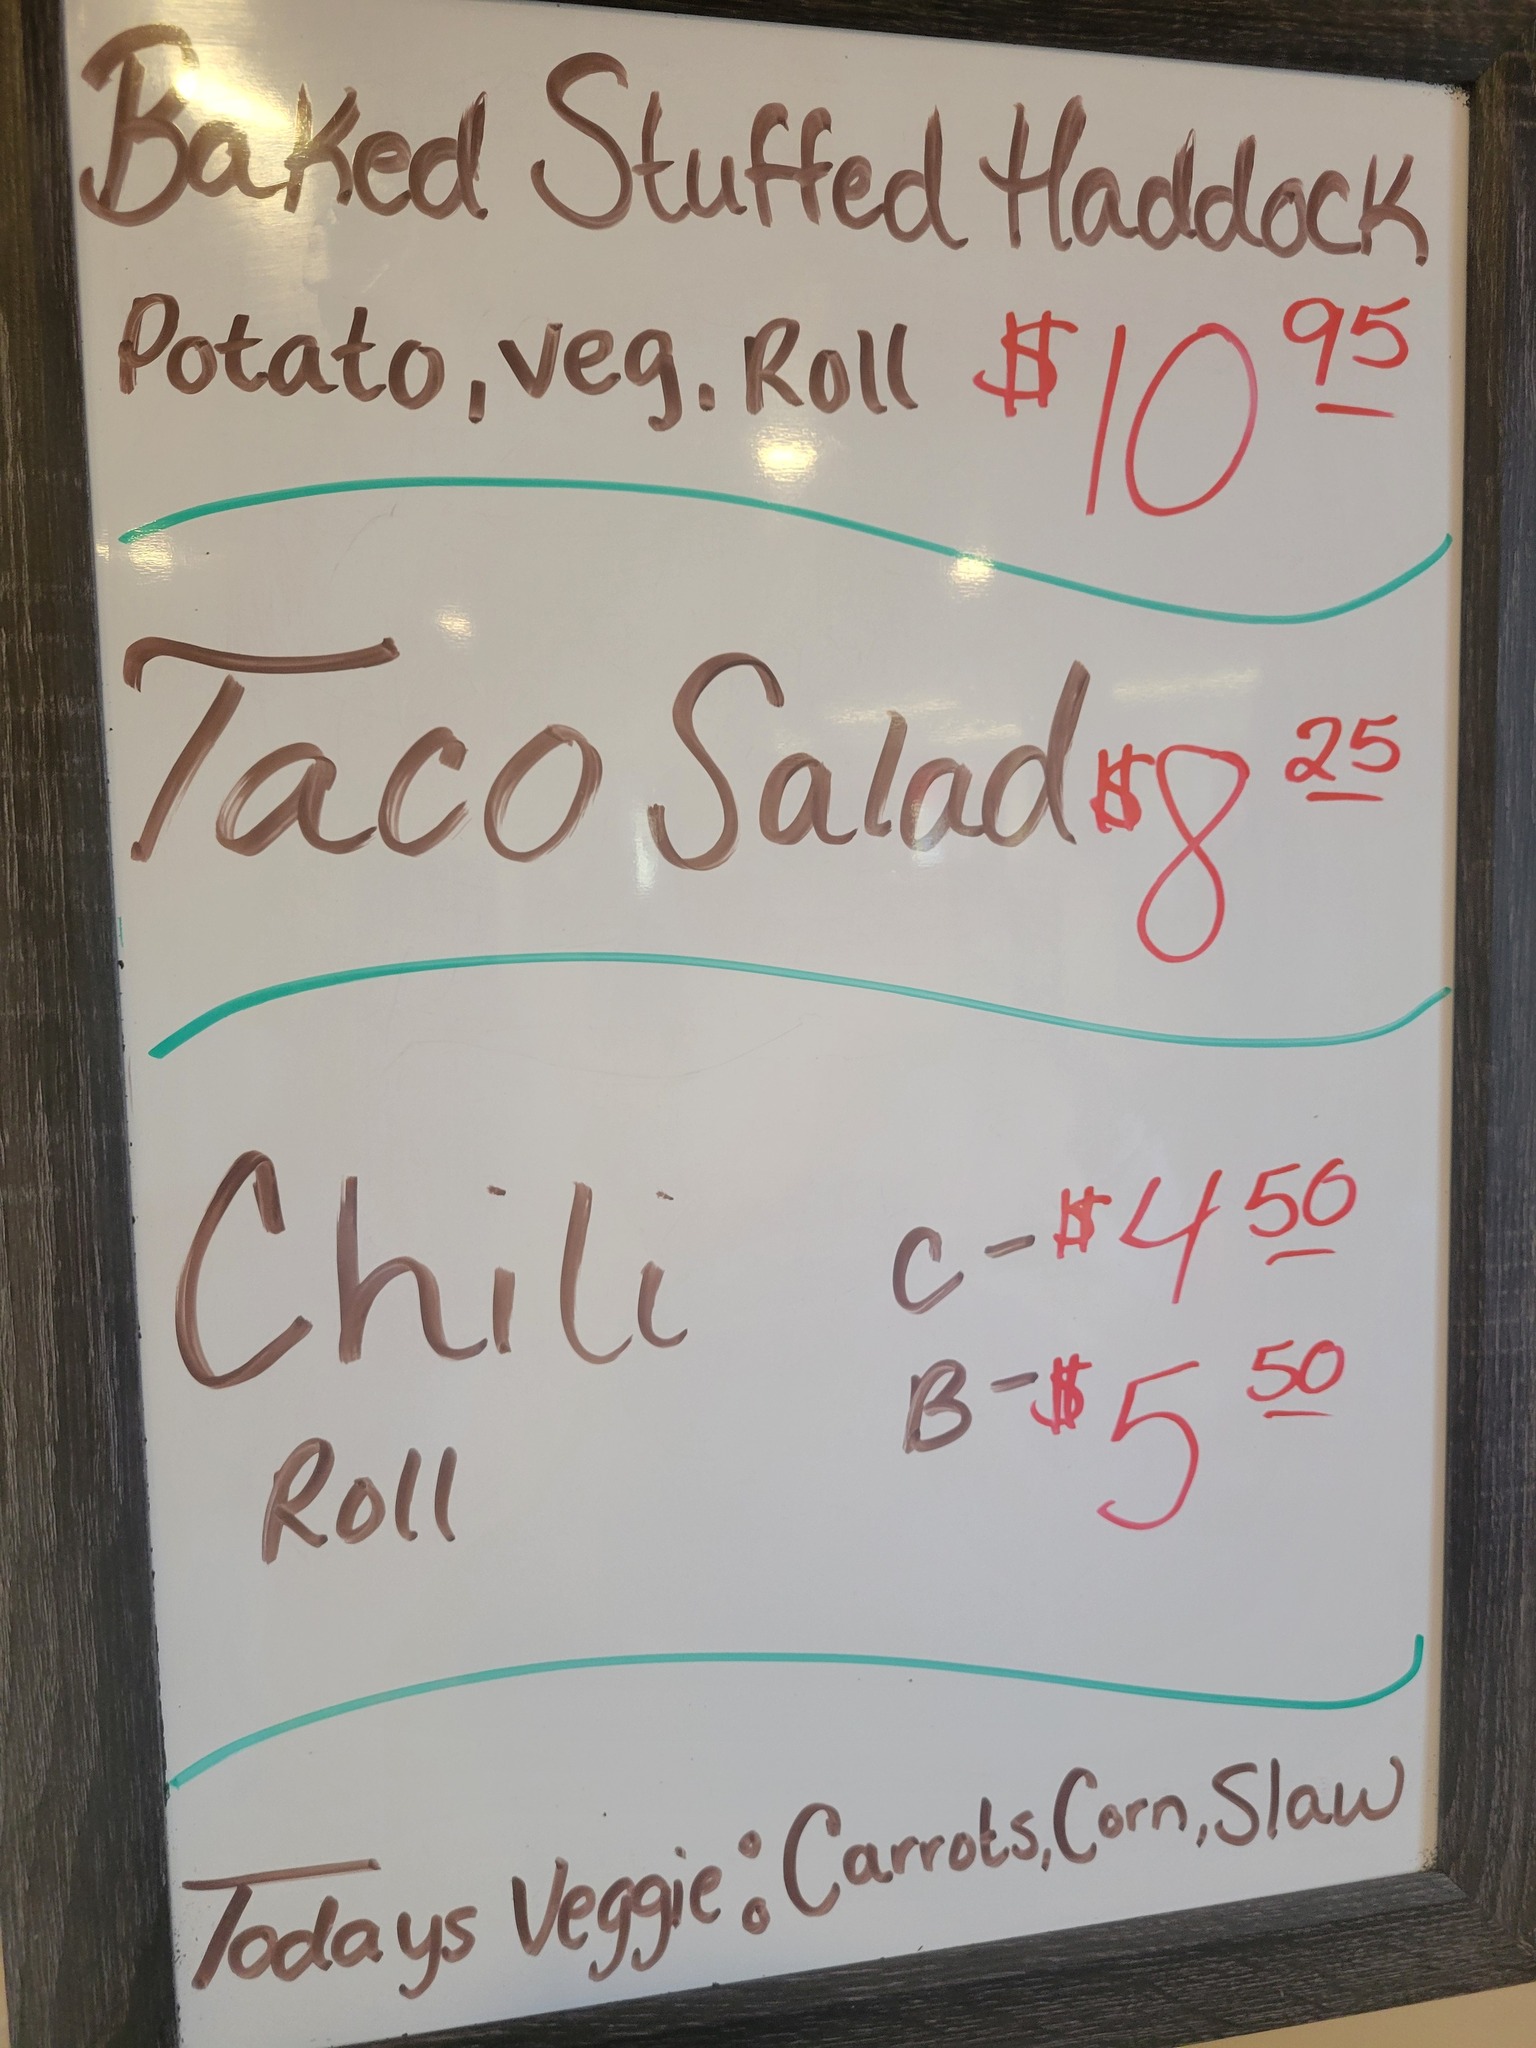 Baked Stuffed Haddock
Potato, veg. Roll $10 95
Taco Salad $8 25
Chili C - $4 50
B - $5 50
Roll
Todays Veggie: Carrots, Corn, Slaw